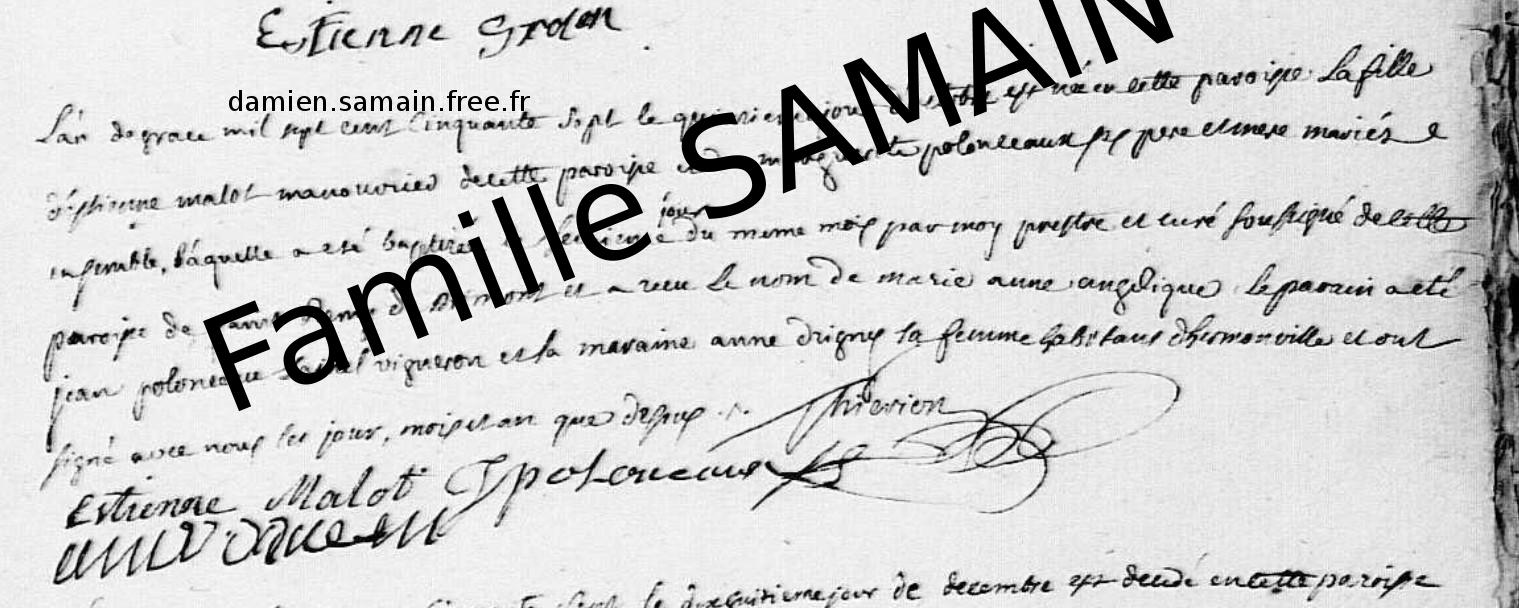 Estienne
damien.samain.free.fr
Famille SAMAIN
L'an de grace mil sept cent cinquante sept le quinzieme jour est née en cette paroisse La fille
d'estienne malot manouvrier de cette paroisse et de marguerite polonceaux ses pere et mere mariés
ensemble, laquelle a eté baptisée le seizieme jour du meme mois par moy prestre et curé soussigné de cette
paroisse de et a receu le nom de marie anne angelique le parain a eté
jean polonceau vigneron et la maraine anne drigny sa femme habitans d'hermonville et ont
signé avec nous les jour, mois et an que dessus
Thierion
Estienne Malot J polonceaux
cinquante sept le dixhuitieme jour de decembre est decedé en cette paroisse